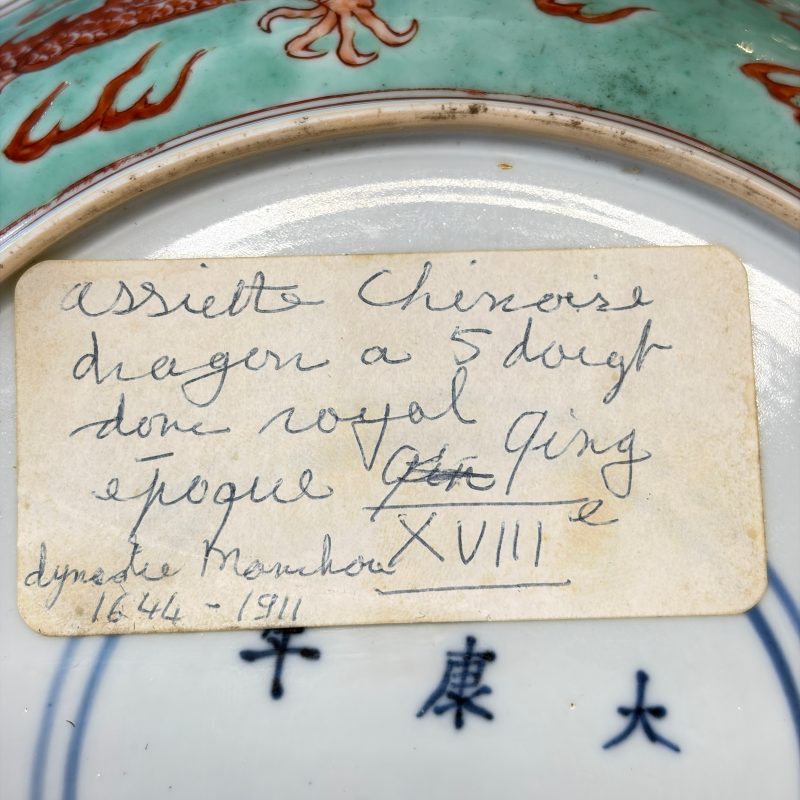 assiette Chinoise
dragon a 5 doigt
donc royal
époque Qing
XVIIIe
dynastie Manchou
1644 - 1911
大 康 年